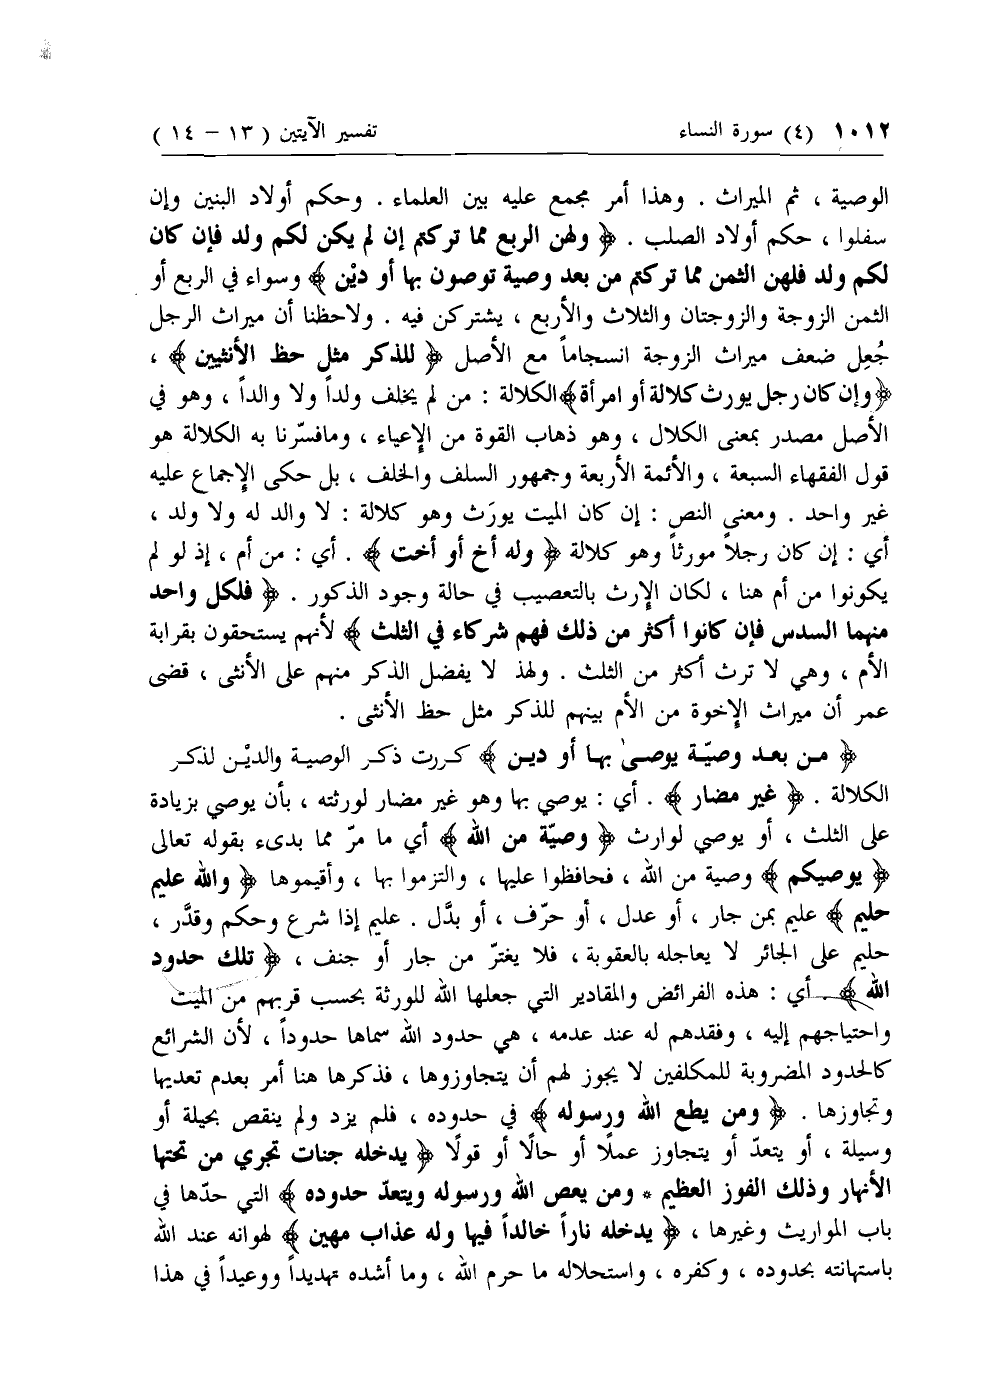 ١٠١٢ (٤) سورة النساء تفسير الآيتين ( ١٣ – ١٤ )
الوصية ، ثم الميراث . وهذا أمر مجمع عليه بين العلماء . وحكم أولاد البنين وإن
سفلوا ، حكم أولاد الصلب . ﴿ ولهن الربع مما تركتم إن لم يكن لكم ولد فإن كان
لكم ولد فلهن الثمن مما تركتم من بعد وصية توصون بها أو ديْن ﴾ وسواء في الربع أو
الثمن الزوجة والزوجتان والثلاث والأربع ، يشتركن فيه . ولاحظنا أن ميراث الرجل
جُعِل ضعف ميراث الزوجة انسجاماً مع الأصل ﴿ للذكر مثل حظ الأنثيين ﴾ ،
﴿وإن كان رجل يورث كلالة أو امرأة﴾ الكلالة : من لم يخلف ولداً ولا والداً ، وهو في
الأصل مصدر بمعنى الكلال ، وهو ذهاب القوة من الإعياء ، ومافسّرنا به الكلالة هو
قول الفقهاء السبعة ، والأئمة الأربعة وجمهور السلف والخلف ، بل حكى الإجماع عليه
غير واحد . ومعنى النص : إن كان الميت يورَث وهو كلالة : لا والد له ولا ولد ،
أي : إن كان رجلاً مورثاً وهو كلالة ﴿ وله أخ أو أخت ﴾ . أي : من أم ، إذ لو لم
يكونوا من أم هنا ، لكان الإرث بالتعصيب في حالة وجود الذكور . ﴿ فلكل واحد
منهما السدس فإن كانوا أكثر من ذلك فهم شركاء في الثلث ﴾ لأنهم يستحقون بقرابة
الأم ، وهي لا ترث أكثر من الثلث . ولهذ لا يفضل الذكر منهم على الأنثى ، قضى
عمر أن ميراث الإخوة من الأم بينهم للذكر مثل حظ الأنثى .
﴿ من بعد وصيّة يوصىٰ بها أو دين ﴾ كررت ذكر الوصية والديْن لذكر
الكلالة . ﴿ غير مضار ﴾ . أي : يوصي بها وهو غير مضار لورثته ، بأن يوصي بزيادة
على الثلث ، أو يوصي لوارث ﴿ وصيّة من الله ﴾ أي ما مرّ مما بدىء بقوله تعالى
﴿ يوصيكم ﴾ وصية من الله ، فحافظوا عليها ، والتزموا بها ، وأقيموها ﴿ والله عليم
حليم ﴾ عليم بمن جار ، أو عدل ، أو حرّف ، أو بدَّل . عليم إذا شرع وحكم وقدَّر ،
حليم على الجائر لا يعاجله بالعقوبة ، فلا يغترّ من جار أو جنف ، ﴿ تلك حدود
الله ﴾ . أي : هذه الفرائض والمقادير التي جعلها الله للورثة بحسب قربهم من الميت
واحتياجهم إليه ، وفقدهم له عند عدمه ، هي حدود الله سماها حدوداً ، لأن الشرائع
كالحدود المضروبة للمكلفين لا يجوز لهم أن يتجاوزوها ، فذكرها هنا أمر بعدم تعديها
وتجاوزها . ﴿ ومن يطع الله ورسوله ﴾ في حدوده ، فلم يزد ولم ينقص بحيلة أو
وسيلة ، أو يتعدّ أو يتجاوز عملًا أو حالًا أو قولًا ﴿ يدخله جنات تجري من تحتها
الأنهار وذلك الفوز العظيم * ومن يعص الله ورسوله ويتعدّ حدوده ﴾ التي حدّها في
باب المواريث وغيرها ، ﴿ يدخله ناراً خالداً فيها وله عذاب مهين ﴾ لهوانه عند الله
باستهانته بحدوده ، وكفره ، واستحلاله ما حرم الله ، وما أشده تهديداً ووعيداً في هذا